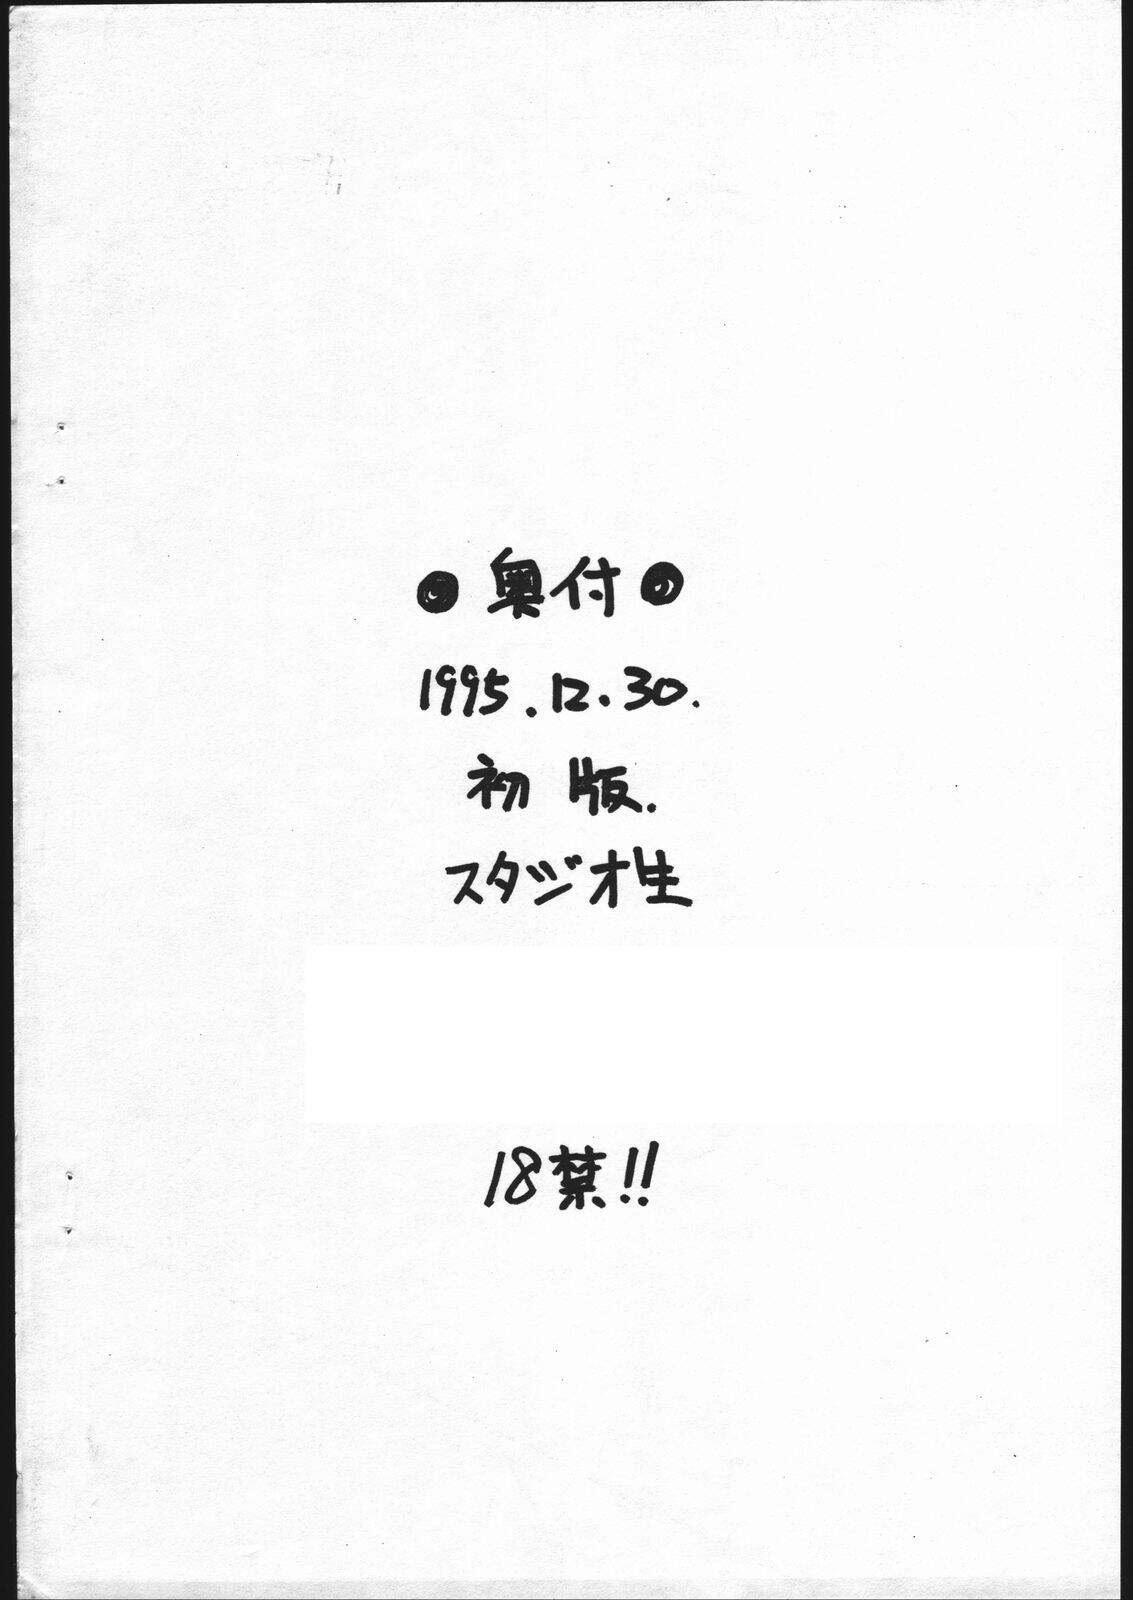 奥付
1995.12.30.
初版.
スタジオ生
18禁!!